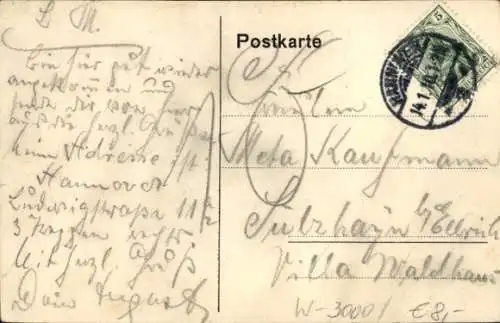 L. M.
Bin für gut wieder
angekommen und
sende dir von hier
aus die herzl. Grüße
meine Adresse ist
Hannover
Ludwigstraße 11 1/2
3 Treppen rechts
Mit herzl. Gruß
Dein August
Postkarte
HANNOVER
14.1.
5
Fräulein
Meta Kaufmann
Sulzhayn by Ellrich
Villa Waldhaus
W-30001 €8,-